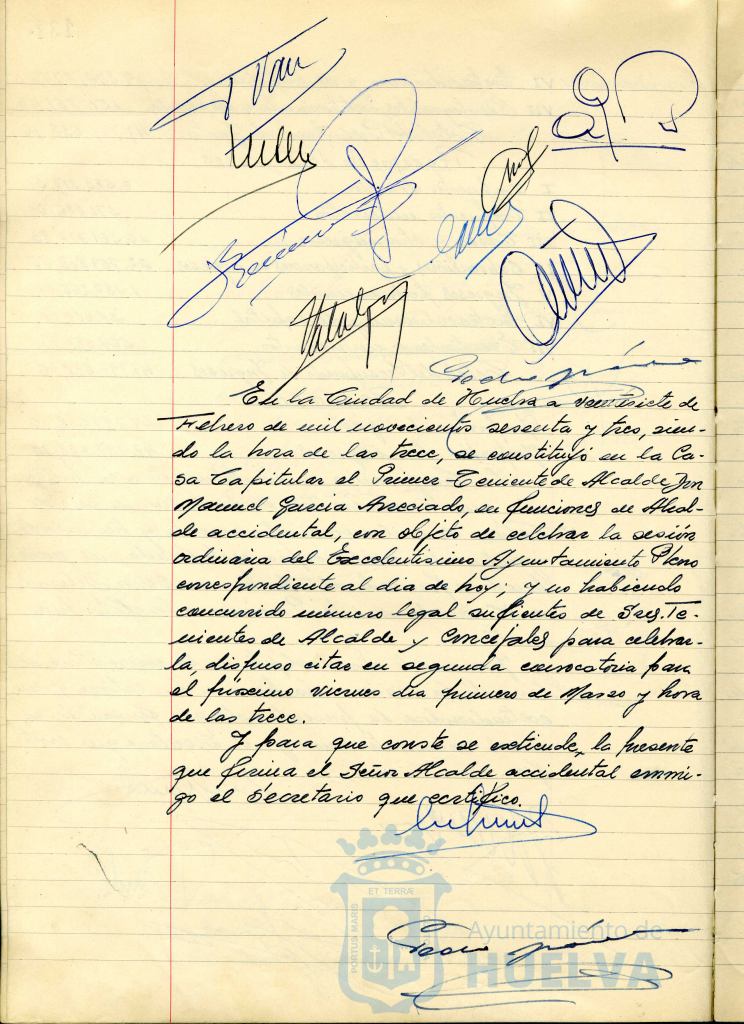 En la Ciudad de Huelva a veintisiete de
Febrero de mil novecientos sesenta y tres, sien-
do la hora de las trece, se constituyó en la Ca-
sa Capitular el Primer Teniente de Alcalde Don
Manuel Garcia Arreciado, en funciones de Alcal-
de accidental, con objeto de celebrar la sesión
ordinaria del Excelentisimo Ayuntamiento Pleno
correspondiente al dia de hoy; y no habiendo
concurrido número legal suficientes de Sres. Te-
nientes de Alcalde y Concejales para celebrar-
la, dispuso citar en segunda convocatoria para
el próximo viernes dia primero de Marzo y hora
de las trece.
Y para que conste se extiende la presente
que firma el Señor Alcalde accidental conmi-
go el Secretario que certifico.
ET TERRÆ
PORTUS MARIS
Ayuntamiento de
HUELVA